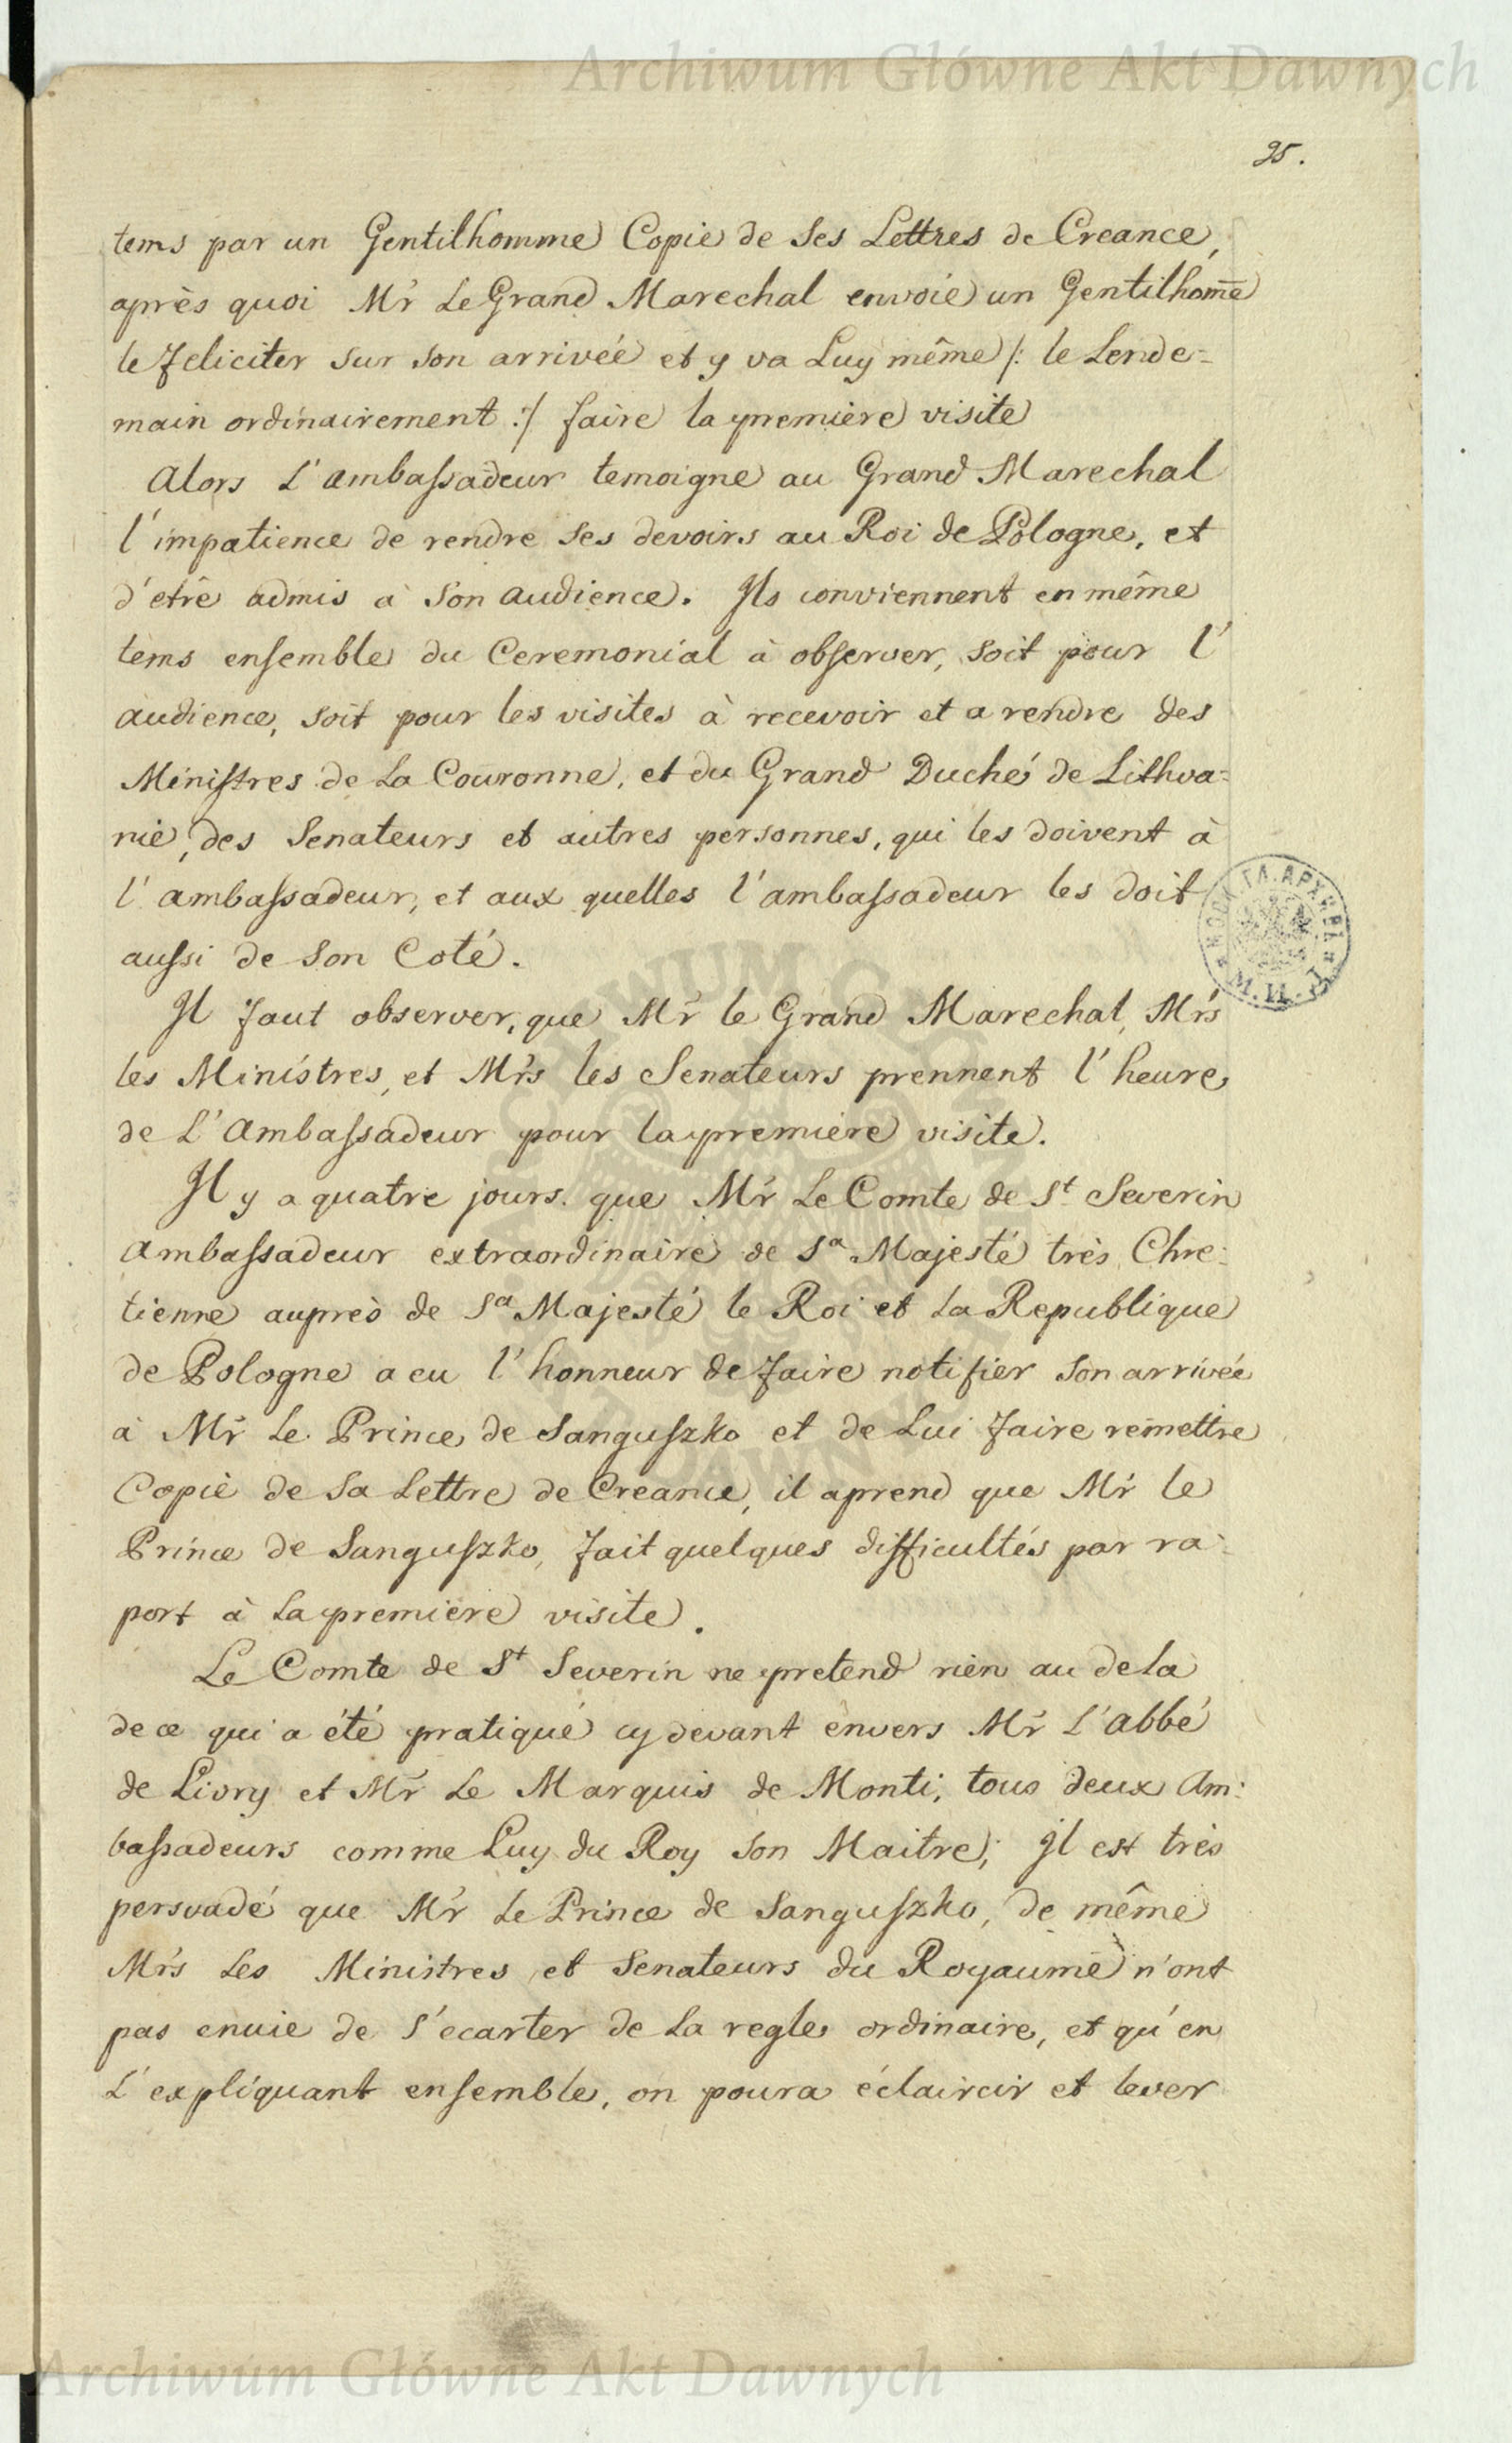 Archiwum Główne Akt Dawnych
95.
tems par un Gentilhomme Copie de Ses Lettres de Creance,
après quoi Mr Le Grand Marechal envoie un Gentilhome
le feliciter sur son arrivée et y va Luy même /: le Lende=
main ordinairement :/ faire la premiere visite
Alors L'ambaſsadeur temoigne au Grand Marechal
l'impatience de rendre Ses devoirs au Roi de Pologne, et
d'etrê admis à Son audience. Ils conviennent en même
tems enſemble du Ceremonial à obſerver, soit pour l'
audience, soit pour les visites à recevoir et a rendre des
Miniſtres de La Couronne, et du Grand Duché de Lithva=
nie, des Senateurs et autres personnes, qui les doivent à
l'ambaſsadeur, et aux quelles l'ambaſsadeur les doit
auſsi de Son Coté.
Il faut observer, que Mr le Grand Marechal, Mrs
les Ministres, et Mrs les Senateurs prennent l'heure
de L'Ambaſsadeur pour la premiere visite.
Il y a quatre jours que Mr Le Comte de St Severin
Ambaſsadeur extraordinaire de Sa Majesté très Chre=
tienne auprès de Sa Majesté le Roi et La Republique
de Pologne a eu l'honneur de faire notifier Son arrivée
à Mr Le Prince de Sanguſzko et de Lui faire remettre
Copie de Sa Lettre de Creance, il aprend que Mr le
Prince de Sanguſzko, fait quelques difficultés par ra=
port à La premiere visite.
Le Comte de St Severin ne pretend rien au dela
de ce qui a été pratiqué cy devant envers Mr L'abbé
de Livry et Mr Le Marquis de Monti, tous deux Am=
baſsadeurs comme Luy du Roy Son Maitre; Il est très
persuadé que Mr Le Prince de Sanguſzko, de même
Mrs Les Ministres et Senateurs du Royaume n'ont
pas envie de s'ecarter de La regle ordinaire, et qu'en
s'expliquant enſemble, on poura éclaircir et lever
Archiwum Główne Akt Dawnych